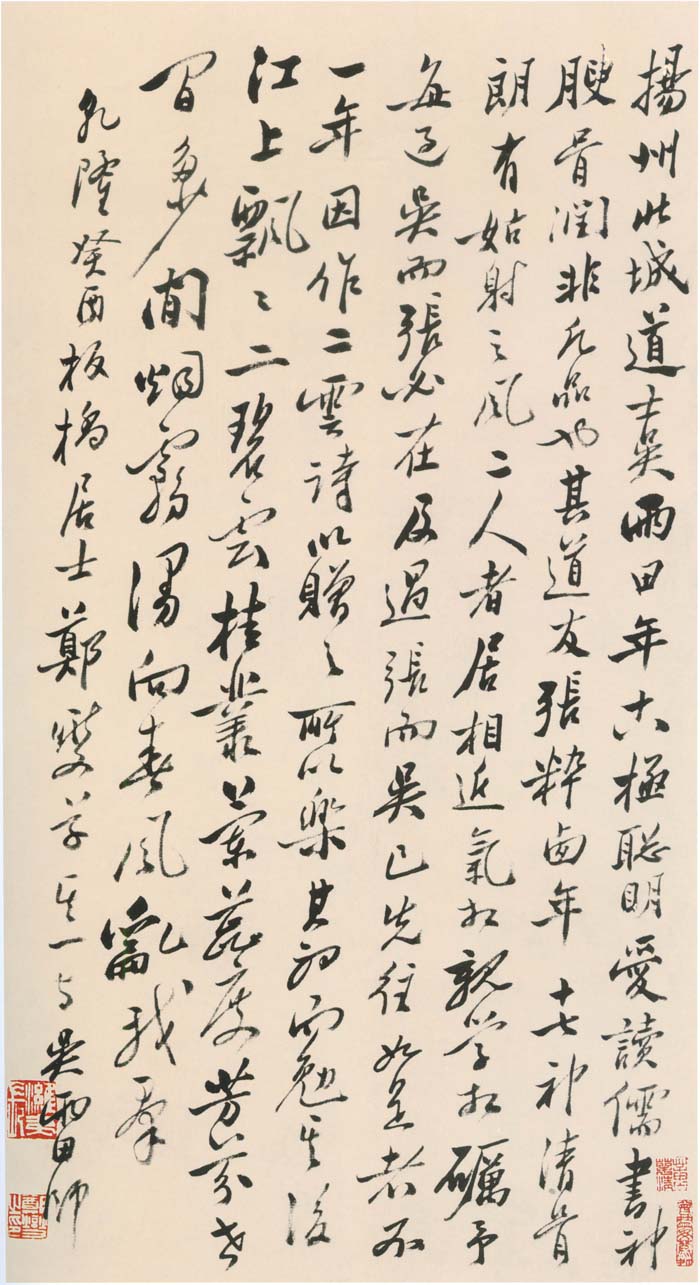 揚州此城道士吳雨田年十六極聰明愛讀儒書神
腴骨潤非凡品也其道友張粹西年十七神清骨
朗有姑射之風二人者居相近氣相親學相礪予
每過吳而張必在及過張而吳已先往如是者不
一年因作二雲詩以贈之所以樂其初而勉其後
江上飄〻二碧雲桂叢蘭蕊度芳芬世
間多少閒烟霧漫向春風亂我羣
乾隆癸酉板橋居士鄭燮草其一与吳雨田師